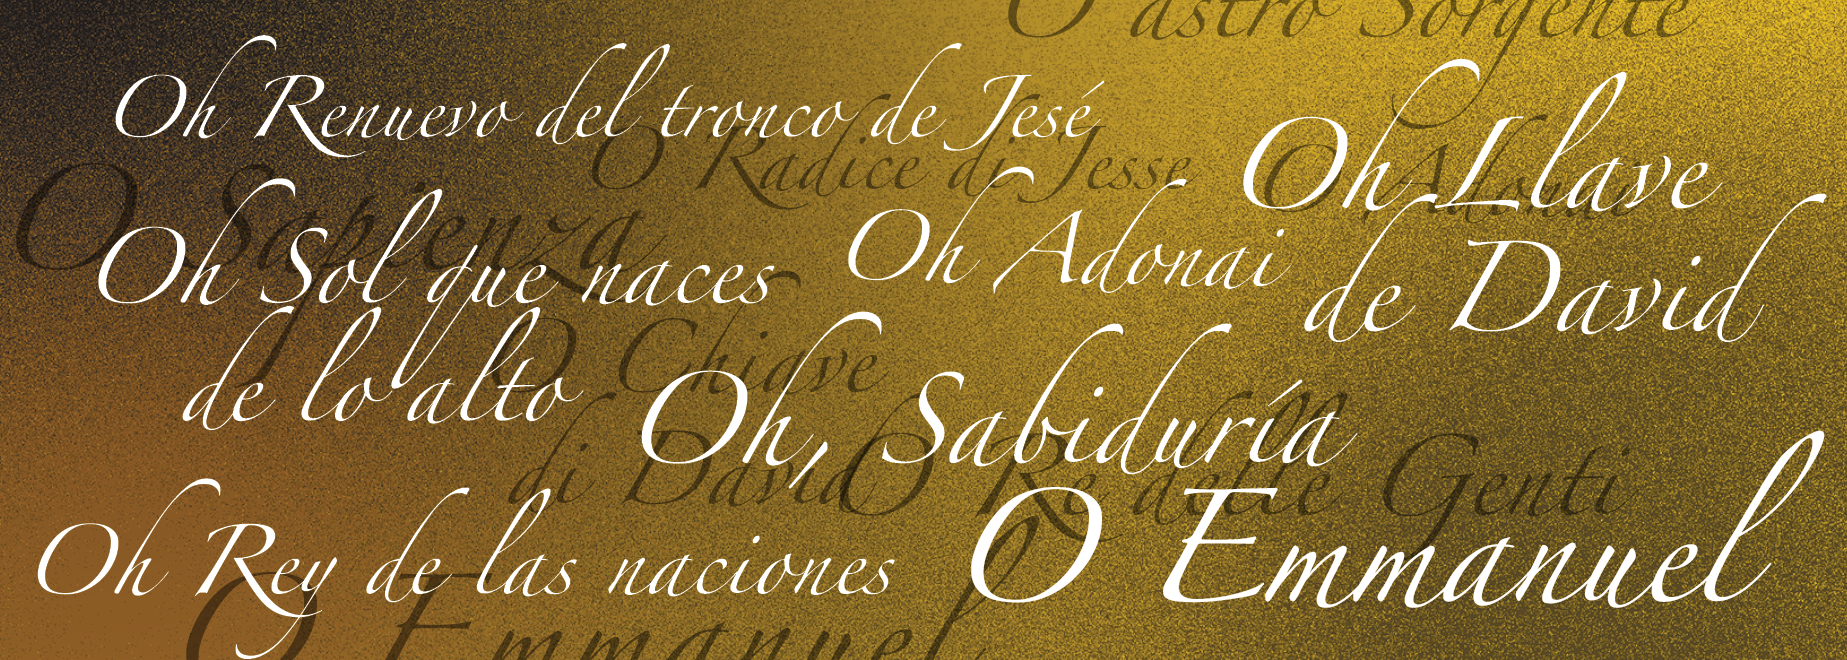 O astro Sorgente
Oh Renuevo del tronco de Jesé
O Radice di Jesse
Oh Llave
de David
O Adonai
O Sapienza
Oh Sol que naces
de lo alto
Oh Adonai
O Chiave
di David
Oh, Sabiduría
O Re delle Genti
Oh Rey de las naciones
O Emmanuel
O Emmanuel